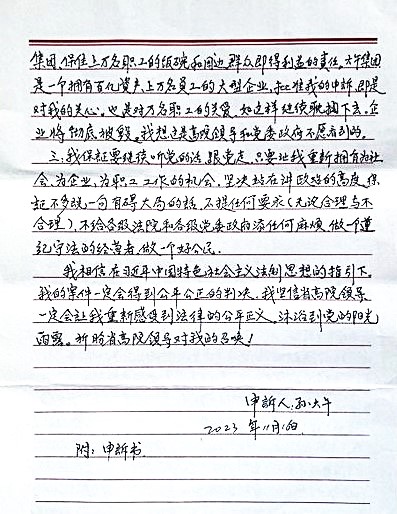 集团、保住上万名职工的饭碗和周边群众即得利益的责任。大午集团
是一个拥有百亿资产、上万名员工的大型企业,批准我的申诉,即是
对我的关心。也是对万名职工的关爱,如这样继续耽搁下去,企
业将彻底被毁。我想这是高院领导和党委政府不愿看到的。
三、我保证要继续听党的话,跟党走,只要让我重新拥有为社
会、为企业、为职工工作的机会,坚决站在讲政治的高度,保
证不多说一句有碍大局的话,不提任何要求(无论合理与不
合理),不给各级法院和各级党委政府添任何麻烦,做一个遵
纪守法的经营者,做一个好公民。
我相信在习近平中国特色社会主义法制思想的指引下,
我的案件一定会得到公平公正的判决。我坚信省高院领导
一定会让我重新感受到法律的公平正义,沐浴到党的阳光
雨露。祈盼省高院领导对我的召唤!
申訴人:孙大午
2023年11月16日
附:申訴书